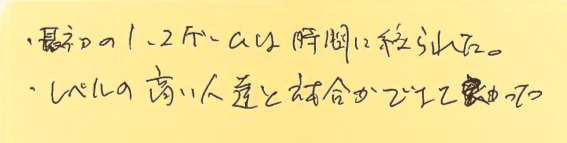 ・最初の1、2ゲームは時間に終られた。
・レベルの高い人達と試合ができてよかった